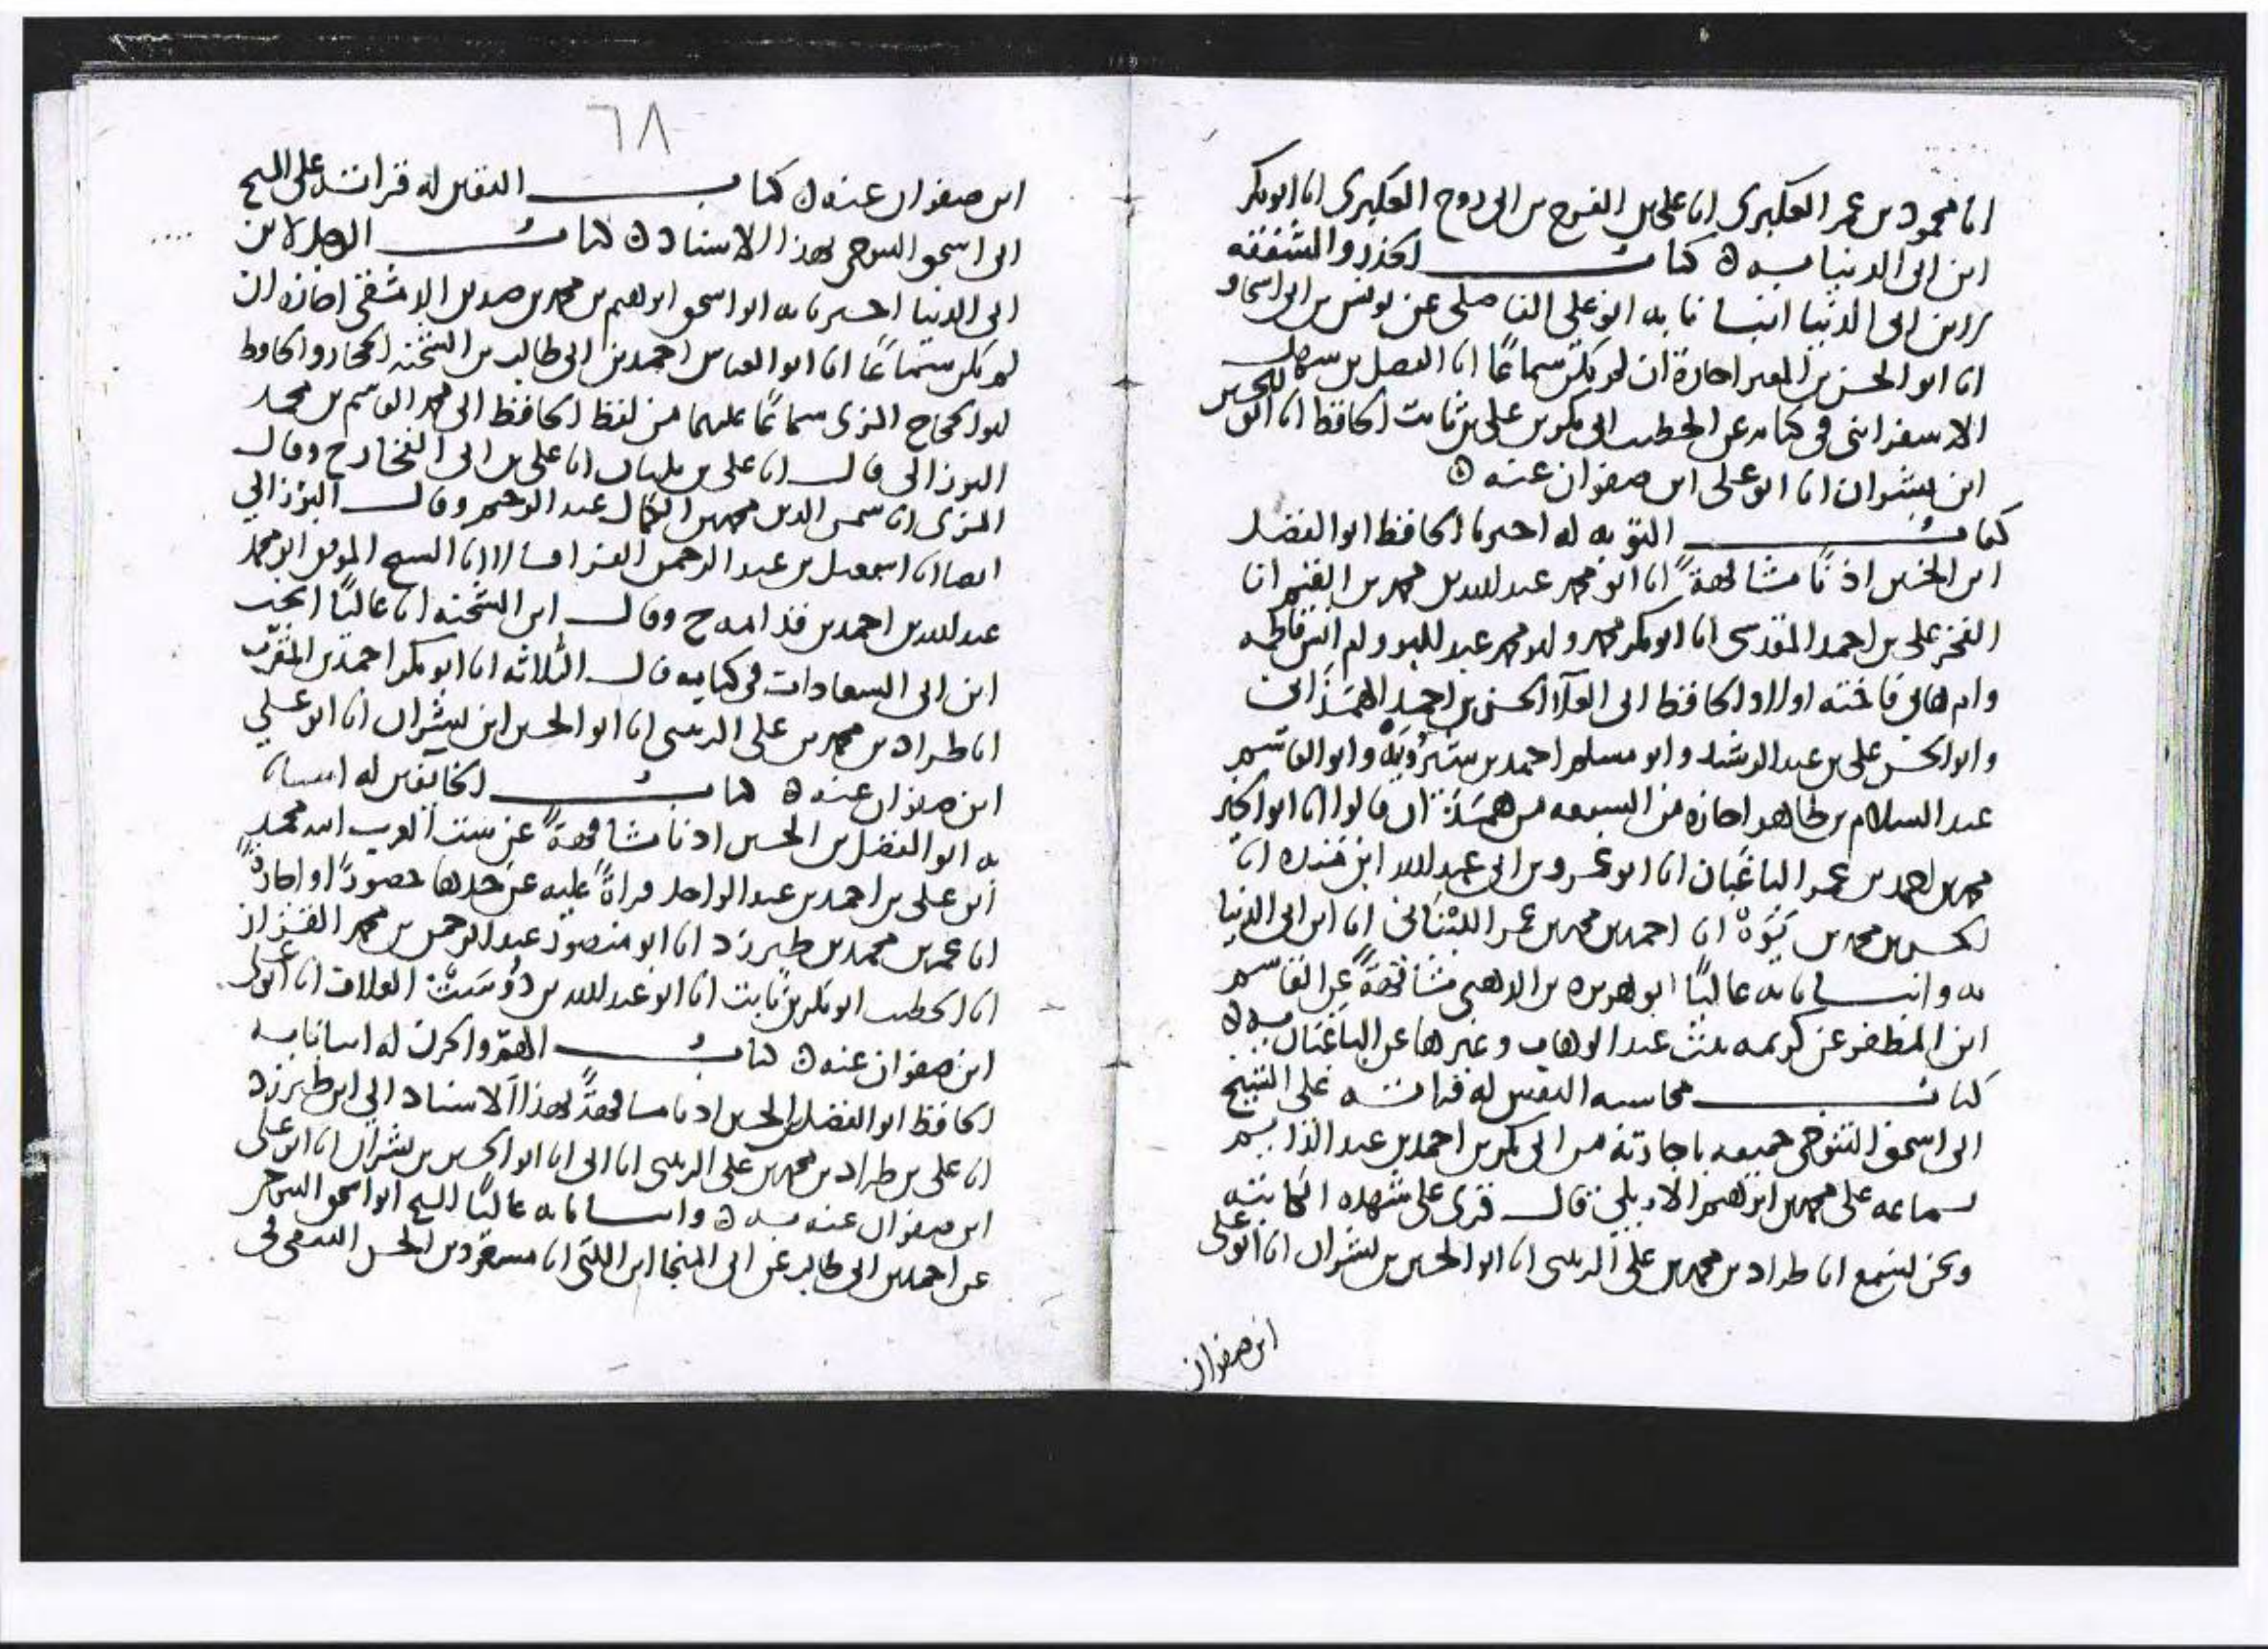 انا محمود بن عمر العكبري انا علي بن الفرج بن ابي روح العكبري انا ابو بكر
ابن ابي الدنيا به ه كتاب الحذر والشفقة
لابن ابي الدنيا انبانا به ابو علي الفاضلي عن يونس بن ابي اسحاق
انا ابو الحسن بن المقير اجازة ان لم يكن سماعًا انا الفضل بن سهل
الاسفرايني في كتابه عن الخطيب ابي بكر بن علي بن ثابت الحافظ انا ابو الحسين
ابن بشران انا ابو علي ابن صفوان عنه ه
كتاب التوبه له اخبرنا الحافظ ابو الفضل
ابن الحسين اذنًا مشافهةً انا ابو محمد عبد الله بن محمد بن القيم انا
الفخر علي بن احمد المقدسي انا ابو بكر محمد وابو محمد عبد الله وام فاطمه
وام هاني فاخته اولاد الحافظ ابي العلا الحسن بن احمد الهمذاني
وابو الحسن علي بن عبد الرشيد وابو مسلم احمد بن شيرويه وابو القاسم
عبد السلام بن طاهر اجازه من السبعه من همذان قالوا انا ابو الخير
محمد بن احمد بن عمر الباغبان انا ابو عمرو بن ابي عبد الله ابن منده انا
الحسن بن محمد بن يَوَهْ انا احمد بن محمد بن عمر اللبناني انا ابن ابي الدنيا
به وانبانا به عاليًا ابو هريره بن الذهبي مشافهةً عن القاسم
ابن المظفر عن كريمه بنت عبد الوهاب وغيرها عن الباغبان به ه
كتاب محاسبه النفس له قراته على الشيخ
ابي اسحق التنوخي جميعه باجازته من ابي بكر بن احمد بن عبد الدايم
بسماعه على محمد بن ابراهيم الاربلي قال قرئ على شهده الكاتبه
ونحن نسمع انا طراد بن محمد بن علي الزينبي انا ابو الحسين بن بشران انا ابو علي
ابن صفوان
٦٨
ابن صفوان عنه ه كتاب التقلل له قراته على الشيخ
ابي اسحق التنوخي بهذا الاسناد ه كتاب الوجل لابن
ابي الدنيا اخبرنا به ابو اسحق ابراهيم بن محمد بن صديق الدمشقي اجازه ان
لم يكن سماعًا انا ابو العباس احمد بن ابي طالب بن الشحنه الحجار والحافظ
ابو الحجاج المزي سماعًا عليهما من لفظ الحافظ ابي محمد القاسم بن محمد
البرزالي قال انا علي بن بلبان انا علي بن ابي الفخار ح وقال
المزي انا شمس الدين محمد بن الكمال عبد الرحيم وقال البرزالي
ايضا انا اسمعيل بن عبد الرحمن الفرا قالا انا الشيخ الموفق ابو محمد
عبد الله بن احمد بن قدامه ح وقال ابن الشحنه انا عاليًا انجب
ابن ابي السعادات في كتابه قال الثلاثه انا ابو بكر احمد بن المقرب
انا طراد بن محمد بن علي الزينبي انا ابو الحسين ابن بشران انا ابو علي
ابن صفوان عنه ه كتاب الخايفين له انبانا
به ابو الفضل بن الحسين اذنا مشافهةً عن ست العرب ابنه محمد
ابن علي بن احمد بن عبد الواحد قراةً عليه عن جدها حضورًا او اجازةً
انا عمر بن محمد بن طبرزد انا ابو منصور عبد الرحمن بن محمد القزاز
انا الخطيب ابو بكر بن ثابت انا ابو عبد الله بن دُوسَتْ العلاف انا ابو علي
ابن صفوان عنه ه كتاب الهمّ والحزن له انبانا به
الحافظ ابو الفضل بن الحسين اذنا مشافهةً بهذا الاسناد الى ابن طبرزد
انا علي بن طراد بن محمد بن علي الزينبي انا ابي انا ابو الحسين بن بشران انا ابو علي
ابن صفوان عنه به ه وانبانا به عاليًا الشيخ ابو اسحق التنوخي
عن احمد بن ابي طالب عن ابي المنجا ابن اللتي انا مسعود بن الحسن الثقفي في